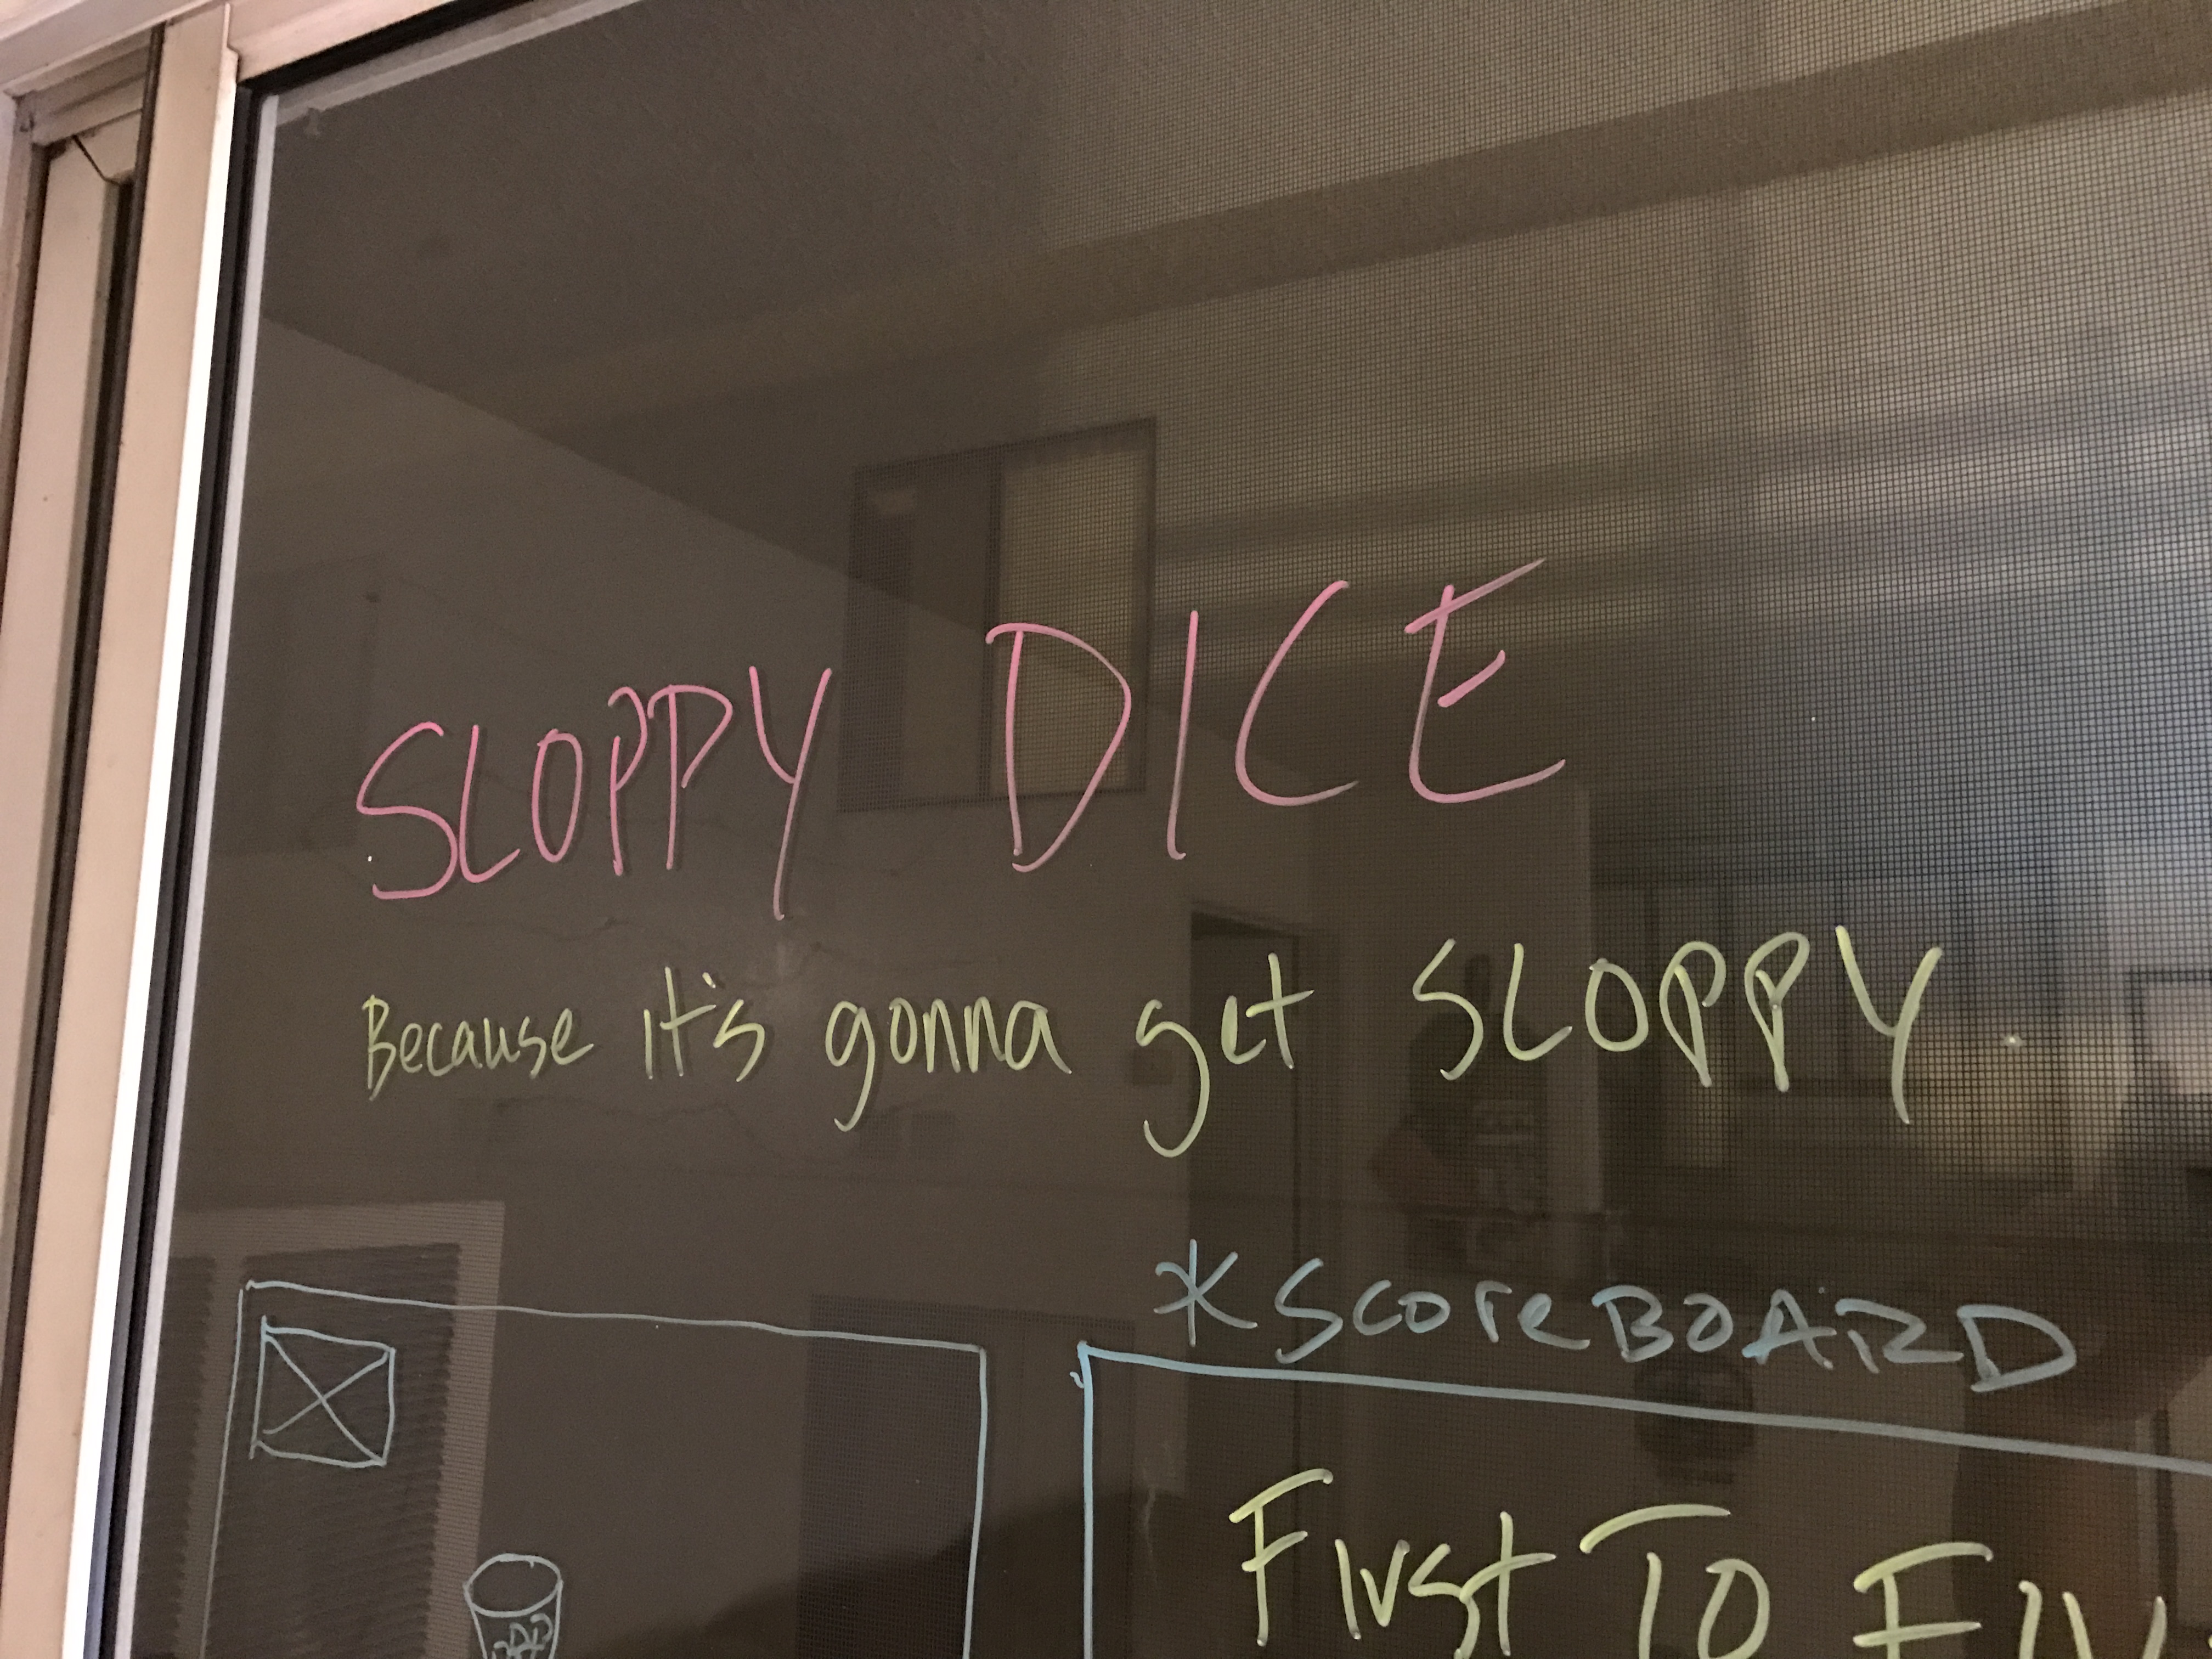 SLOPPY DICE
Because it's gonna get SLOPPY
*ScoreBOARD
First To